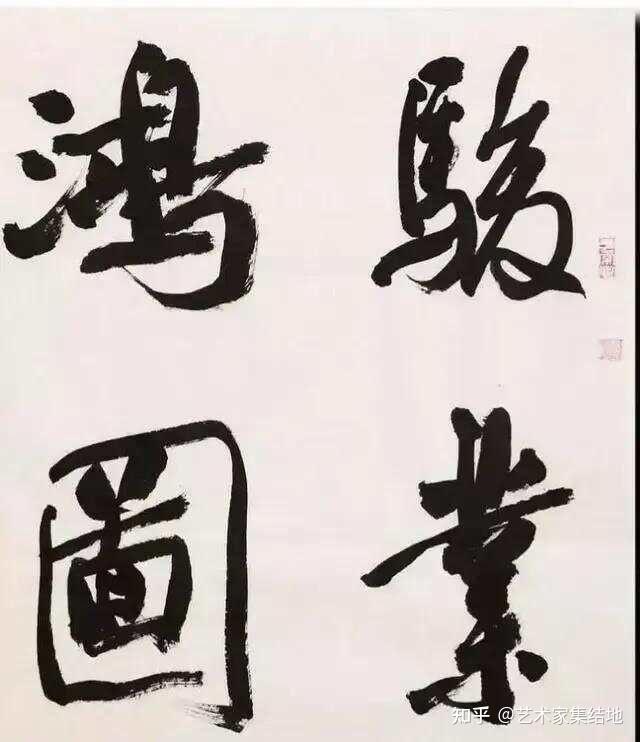 駿業
鴻圖
知乎 @艺术家集结地